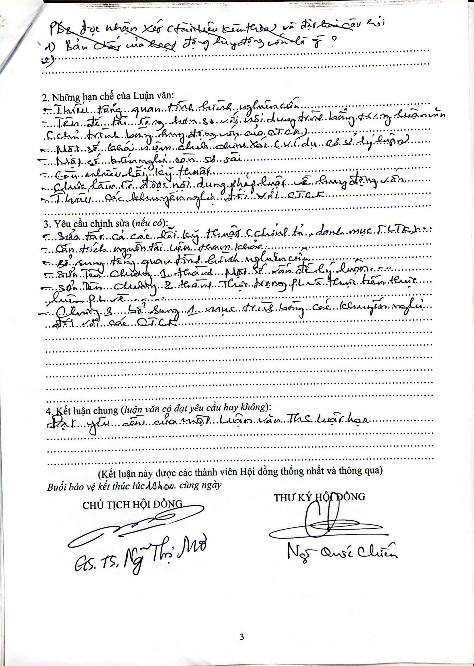 PB2 đọc nhận xét (tài liệu kèm theo) và đặt hai câu hỏi
1) Bản chất của hoạt động huy động vốn là gì?
2)
2. Những hạn chế của Luận văn:
- Thiếu tổng quan tình hình nghiên cứu
- Tên đề tài rộng hơn so với nội dung trình bày trong luận văn
(chỉ trình bày huy động vốn của CTCK)
- Một số khái niệm chưa chính xác (ví dụ cơ sở lý luận)
- Một số kiến nghị còn sơ sài
- Còn nhiều lỗi kỹ thuật
- Chưa làm rõ được nội dung pháp luật về huy động vốn
- Thiếu các khuyến nghị đối với CTCK
3. Yêu cầu chỉnh sửa (nếu có):
- Sửa tất cả các lỗi kỹ thuật (chính tả, danh mục TLTK)
- Cần trích nguồn tài liệu tham khảo
- Bổ sung tổng quan tình hình nghiên cứu
- Sửa tên chương 1 thành Một số vấn đề lý luận
- Sửa tên chương 2 thành Thực trạng PL và thực tiễn thực
hiện PL về
- Chương 3 bổ sung 1 mục trình bày các khuyến nghị
đối với các CTCK
4. Kết luận chung (luận văn có đạt yêu cầu hay không):
Đạt yêu cầu của một Luận văn ThS luật học
(Kết luận này được các thành viên Hội đồng thống nhất và thông qua)
Buổi bảo vệ kết thúc lúc cùng ngày
CHỦ TỊCH HỘI ĐỒNG THƯ KÝ HỘI ĐỒNG
GS.TS. Ng Thị Mơ Ngô Quốc Chiến
3